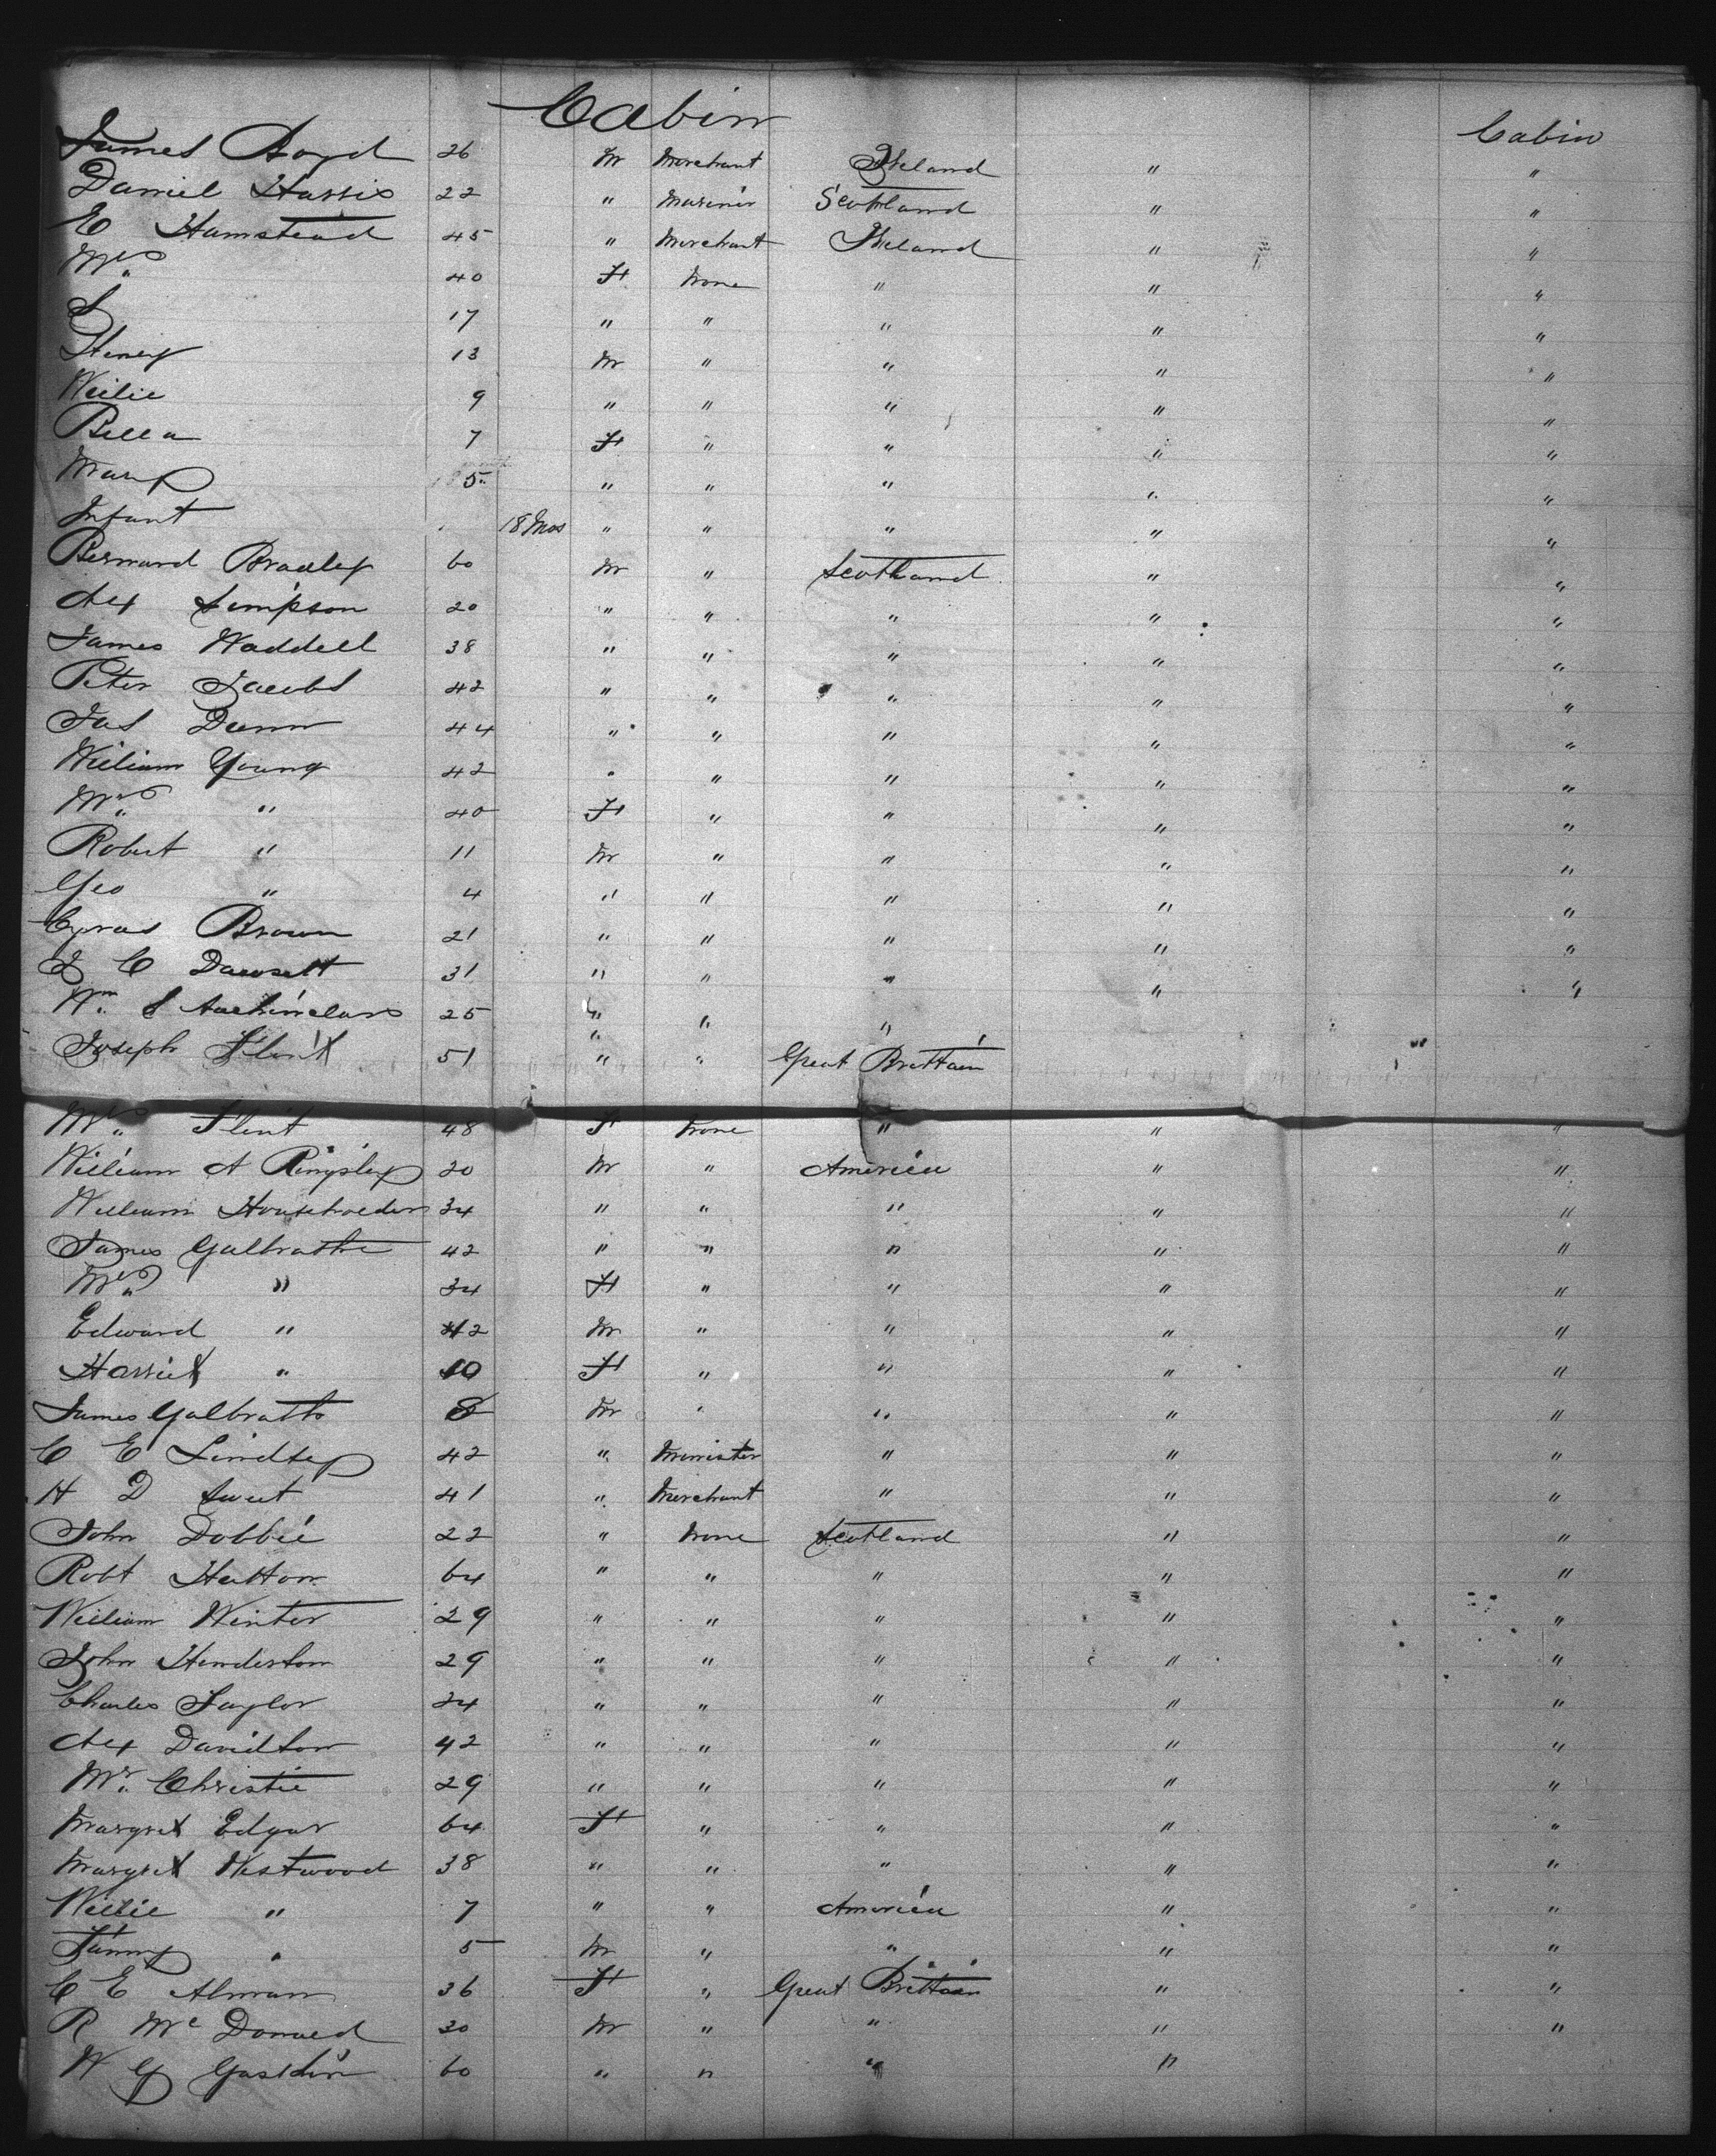 Cabin
Cabin
James Boyd 26 M Merchant Ireland " "
Daniel Harris 22 " Mariner Scotland " "
E Hamstead 45 " Merchant Ireland " "
Mrs 40 F None " " "
S 17 " " " " "
Henery 13 M " " " "
Willie 9 " " " " "
Bella 7 F " " " "
Mary 5 " " " " "
Infant 18 Mos " " " " "
Bernard Bradley 60 M " Scotland " "
Alex Simpson 20 " " " " "
James Waddell 38 " " " " "
Peter Jacobs 42 " " " " "
Jas Dunn 44 " " " " "
William Young 42 " " " " "
Mrs " 40 F " " " "
Robert " 11 M " " " "
Geo " 4 " " " " "
Cyrus Brown 21 " " " " "
C Dawsett 31 " " " " "
Wm S Auchinclass 25 " " "
Joseph Flint 51 " " Great Brittain
Mrs Flint 48 F None " " "
William A Ringsley 20 M " America " "
William Householder 34 " " " " "
James Galbrathe 42 " " " " "
Mrs " 34 F " " " "
Edward " 12 M " " " "
Harriet " 10 F " " " "
James Galbrath 8 M " " " "
C E Lindsey 42 " Minister " " "
H D Sweet 41 " Merchant " " "
John Dobbie 22 " None Scotland " "
Robt Hatton 64 " " " " "
William Winter 29 " " " " "
John Henderson 29 " " " " "
Charles Taylor 24 " " " " "
Alex Davidson 42 " " " " "
Mr Christie 29 " " " " "
Margret Edgar 64 F " " " "
Margret Westwood 38 " " " " "
Willie " 7 " " America " "
Fanny " 5 M " " " "
C E Alman 36 F " Great Brittain " "
R McDonald 30 M " " " "
W G 60 " " " "